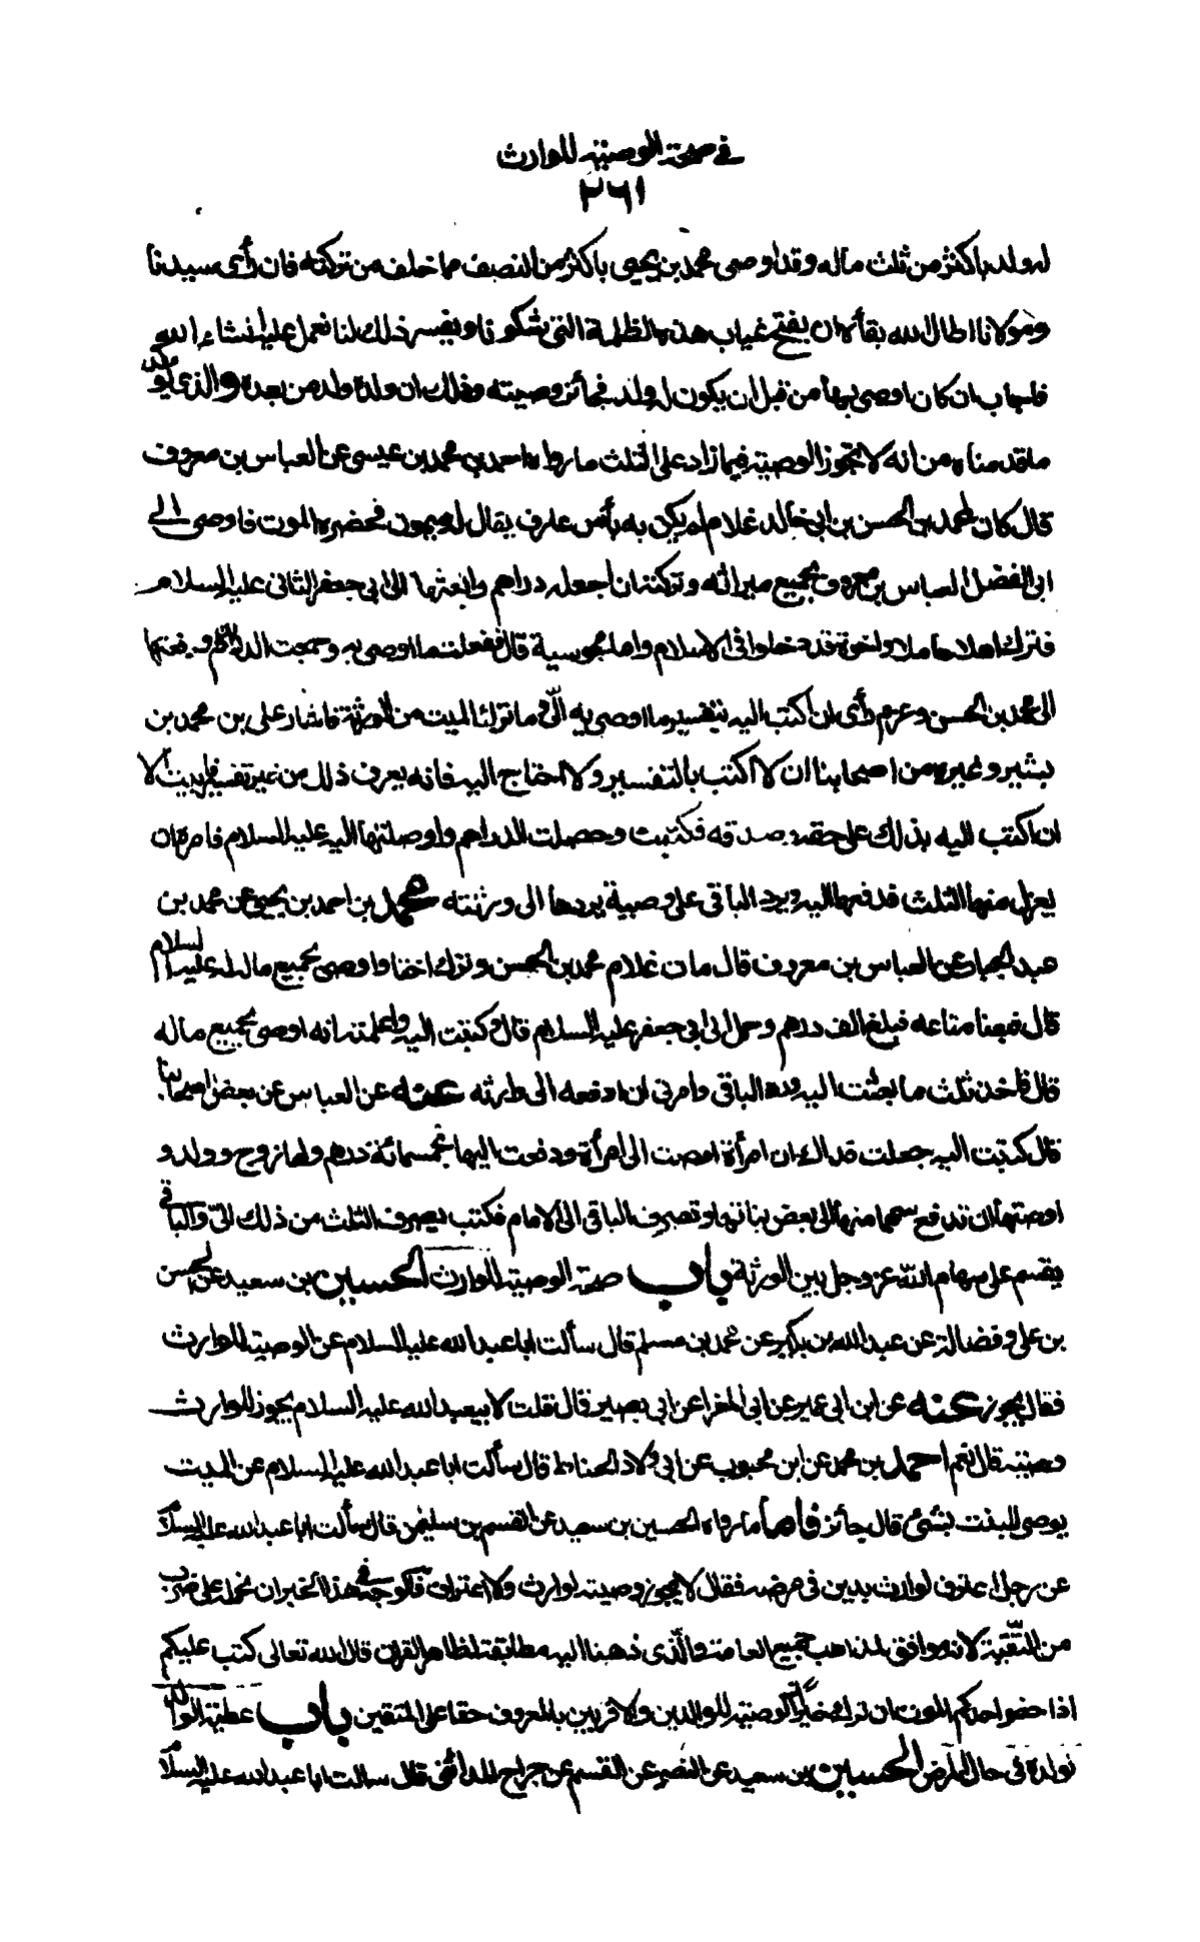 في صحة الوصية للوارث
٢٦١
له ولد باكثر من ثلث ماله وقد اوصى محمد بن يحيى باكثر من النصف مما خلف من تركته فان رأى سيدنا
ومولانا اطال الله بقاءه ان يفتح غياب هذه الظلمة التي شكونا ويفسر ذلك لنا نعمل عليه انشاء الله
فاجاب ان كان اوصى بها من قبل ان يكون له ولد فجائز وصيته وذلك ان ولده ولد من بعده والذي يؤكد
ماقدمناه من انه لا تجوز الوصية فيما زاد على الثلث ما رواه احمد بن محمد بن عيسى عن العباس بن معروف
قال كان لمحمد بن الحسن بن ابي خالد غلام لم يكن به بأس عارف يقال له ميمون فحضره الموت فاوصى الى
ابي الفضل العباس بن معروف بجميع ميراثه وتركته ان اجعله دراهم وابعث بها الى ابي جعفر الثاني عليه السلام
فترك اهلا حاملا واخوة قد دخلوا في الاسلام واما مجوسية قال ففعلت ما اوصى به وجمعت الدراهم ودفعتها
الى محمد بن الحسن وعزم رأى ان اكتب اليه بتفسير ما اوصى به الّى وما ترك الميت من الورثة فاشار على بن محمد بن
بشير وغيره من اصحابنا ان لا اكتب بالتفسير ولا احتاج اليه فانه يعرف ذلك من غير تفسير فابيت الا
ان اكتب اليه بذلك على حقه وصدقه فكتبت وحصلت الدراهم واوصلتها اليه عليه السلام فامره ان
يعزل منها الثلث فدفعها اليه ويرد الباقى على وصية يردها الى ورثته محمد بن احمد بن يحيى عن محمد بن
عبد الجبار عن العباس بن معروف قال مات غلام محمد بن الحسن وترك اختا واوصى بجميع ماله له عليه السلام
قال فبعنا متاعه فبلغ الف درهم وحمل الى ابي جعفر عليه السلام قال وكتبت اليه واعلمته انه اوصى بجميع ماله
قال فاخذ ثلث ما بعثت اليه ورد الباقى وامرني ان ادفعه الى وارثه عنه عن العباس عن بعض اصحابنا
قال كتبت اليه جعلت فداك ان امرأة اوصت الى امرأة ودفعت اليها خمسمائة درهم ولها زوج وولد و
اوصتها ان تدفع سهما منها الى بعض بناتها وتصرف الباقى الى الامام فكتب يصرف الثلث من ذلك الىّ والباقي
يقسم على سهام الله عز وجل بين الورثة باب صحة الوصية للوارث الحسين بن سعيد عن الحسن
بن على وفضالة عن عبد الله بن بكير عن محمد بن مسلم قال سألت ابا عبد الله عليه السلام عن الوصية للوارث
فقال يجوز عنه عن ابن ابي عمير عن ابي المغرا عن ابي بصير قال قلت لابيعبد الله عليه السلام يجوز للوارث
وصية قال نعم احمد بن محمد عن ابن محبوب عن ابي ولاد الحناط قال سألت ابا عبد الله عليه السلام عن الميت
يوصى للبنت بشئ قال جائز فاما ما رواه الحسين بن سعيد عن القسم بن سليمن قال سألت ابا عبد الله عليه السلام
عن رجل اعترف لوارث بدين في مرضه فقال لا يجوز وصيته لوارث ولا اعتراف فالوجه في هذا الخبر ان نحمله على ضرب
من التّقية لانه موافق لمذاهب جميع العامة والّذى ذهبنا اليه مطابقة لظاهر القران قال الله تعالى كتب عليكم
اذا حضر احدكم الموت ان ترك خيرا الوصية للوالدين والاقربين بالمعروف حقا على المتقين باب عطية الوالد
لولده في حال المرض الحسين بن سعيد عن النضر عن القسم عن جراح المدائنى قال سالت ابا عبد الله عليه السلام